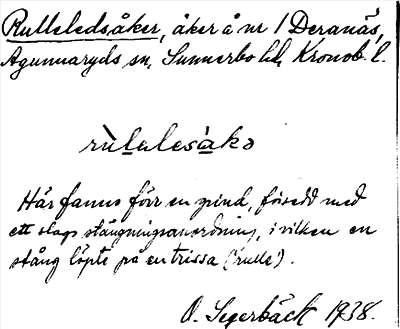 Rulleledsåker, åker å nr 1 Deranäs,
Agunnaryds sn, Sunnerbo hd, Kronob. l.
rùlelesàkə
Här fanns förr en grind, försedd med
ett slags stängningsanordning, i vilken en
stång löpte på en trissa ('rulle').
O. Segerbäck 1938.